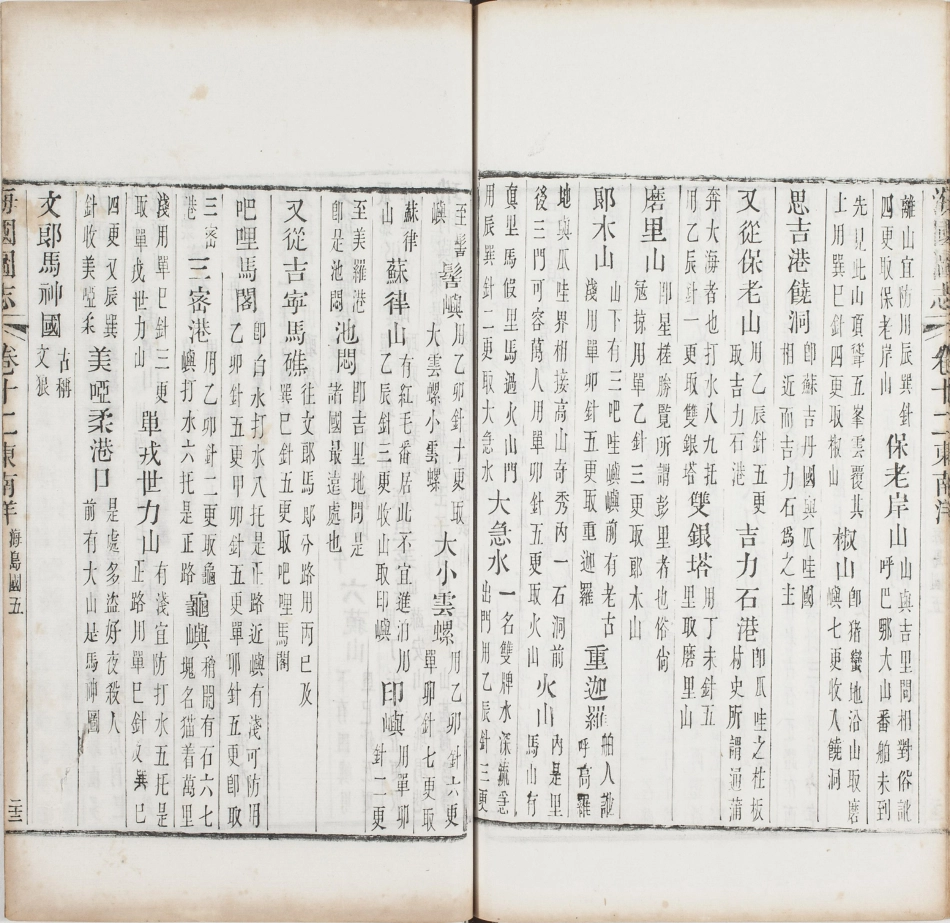 離山宜防用辰巽針
四更取保老岸山
保老岸山
山與吉里問相對俗訛
呼巴哪大山番舶未到
先見此山頂聳五峯雲覆其
上用巽巳針四更取椒山
椒山
卽猪蠻地沿山取磨
嶼七更收入饒洞
思吉港饒洞
卽蘇吉丹國與瓜哇國
相近而吉力石爲之主
又從保老山
用乙辰針五更
取吉力石港
吉力石港
卽瓜哇之杜板
村史所謂通蒲
奔大海者也打水八九托
用乙辰針一更取雙銀塔
雙銀塔
用丁未針五
里取磨里山
磨里山
卽星槎勝覽所謂彭里者也俗尙
寇掠用單乙針三更取郎木山
郎木山
山下有三吧哇嶼嶼前有老古
淺用單卯針五更取重迦羅
重迦羅
舶人訛
呼高羅
地與瓜哇界相接高山奇秀內一石洞前
後三門可容萬人用單卯針五更取火山
火山
內是里
馬山有
真里馬假里馬過火山門
用辰巽針二更取大急水
大急水
一名雙牌水深流急
出門用乙辰針三更
至髻
嶼
髻嶼
用乙卯針十更取
大雲螺小雲螺
大小雲螺
用乙卯針六更
單卯針七更取
蘇律
山
蘇律山
有紅毛番居此不宜進泊用
乙辰針三更收山取印嶼
印嶼
用單卯
針二更
至美羅港
卽是池悶
池悶
卽吉里地問是
諸國最遠處也
又從吉寧馬礁
往文郎馬郎分路用丙巳及
巽巳針五更取吧哩馬閣
吧哩馬閣
卽白水打水八托是正路近嶼有淺可防用
乙卯針五更甲卯針五更單卯針五更卽取
三密
港
三密港
用乙卯針二更取龜
嶼打水六托是正路
龜嶼
稍開有石六七
塊名猫着萬里
淺用單巳針三更
取單戎世力山
單戎世力山
有淺宜防打水五托是
正路用單巳針又巽巳
四更又辰巽
針收美啞柔
美啞柔港口
是處多盜好夜殺人
前有大山是馬神國
文郎馬神國
古稱
文狼
海國圖志
卷十二東南洋
海島國五